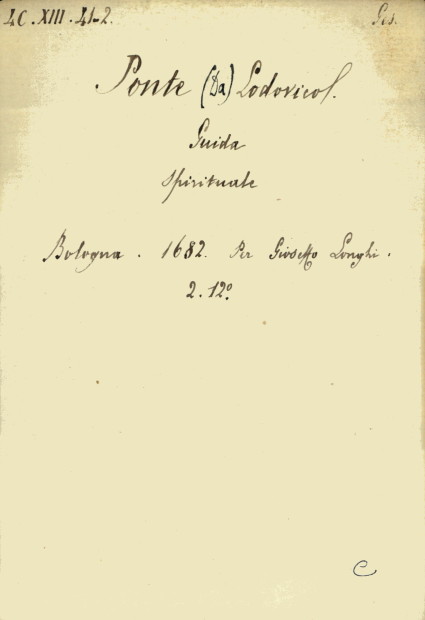 4C. XIII. 41-2. Ges.
Ponte (Da) Lodovico.
Guida
spirituale
Bologna. 1682. Per Gioseffo Longhi.
2. 12º.
C